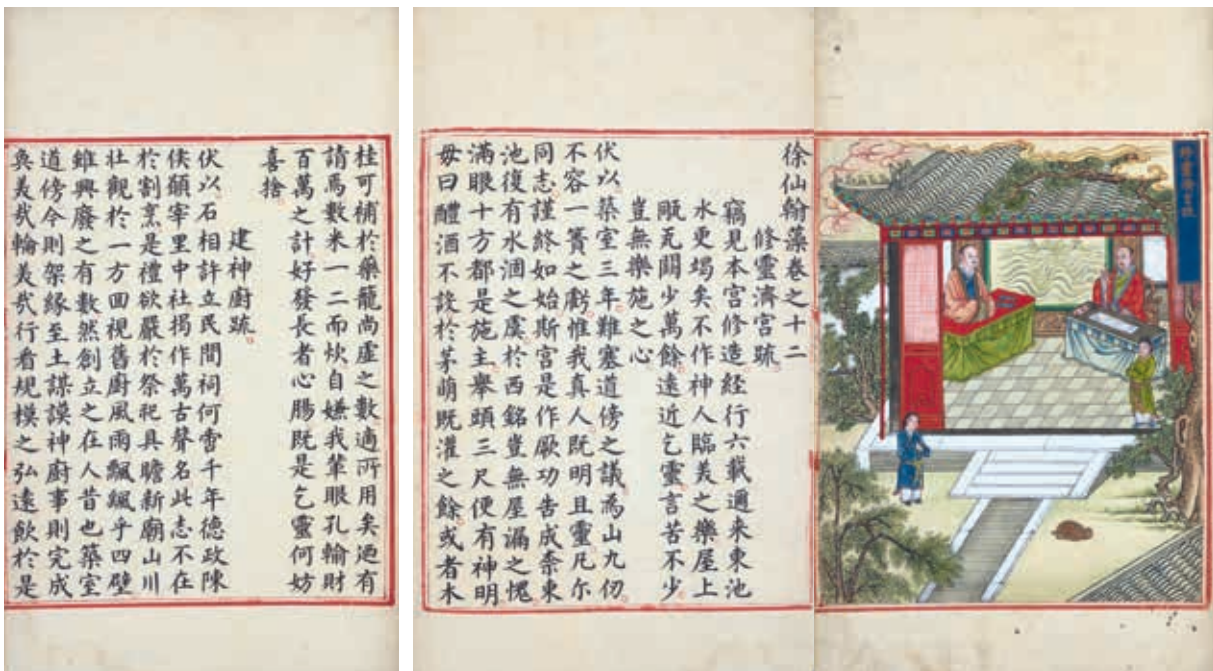 徐仙翰藻卷之十二
修靈濟宮疏
竊見本宮修造経行六載邇来東池
水更堨矣不作神人臨美之樂屋上
瓶瓦闕少萬餘遠近乞靈言苦不少
豈無樂施之心
伏以築室三年難塞道傍之議為山九仞
不容一簣之虧惟我真人既明且靈凡尔
同志謹終如始斯宮是作厥功告成柰東
池復有水涸之虞於西銘豈無屋漏之愧
滿眼十方都是施主舉頭三尺便有神明
毋曰醴酒不設於茅萌既灌之餘或者木
桂可補於藥籠尚虛之數適所用矣迺有
請焉數米一二而炊自嫌我輩眼孔輸財
百萬之計好發長者心腸既是乞靈何妨
喜捨
建神廚疏
伏以石相許立民間祠何啻千年德政陳
侯願宰里中社揭作萬古聲名此志不在
於割烹是禮欲嚴於祭祀具瞻新廟山川
壯觀於一方回視舊廚風雨飄颻乎四壁
雖興廢之有數然創立之在人昔也築室
道傍今則架緣至土謀謨神廚事則完成
奐美哉輪美哉行看規模之弘遠飲於是